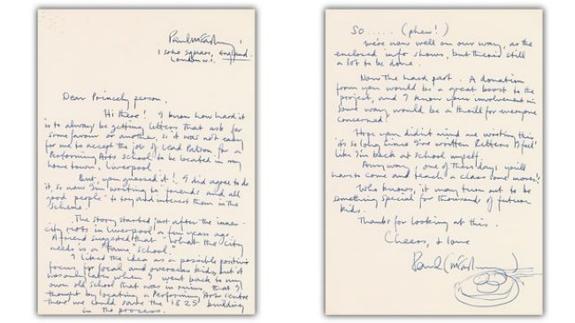 Paul McCartney
1 Soho Square, England.
London W1.
Dear Princely person.
Hi there! I know how hard it
is to always be getting letters that ask for
some favour or another, so it was not easy
for me to accept the job of Lead Patron for a
Performing Arts School to be located in my
home town, Liverpool.
But, you guessed it! I did agree to do
it, so now I'm writing to "friends and all
good people" to try and interest them in the
scheme.
The story started just after the inner-
city riots in Liverpool a few years ago.
A friend suggested that "what the city
needs is a "Fame" School."
I liked the idea as a possible positive
focus for local and overseas kids, but it
was only later when I went back to my
own old school that was in ruins, that I
thought by locating a Performing Arts centre
there we could save the 1825 building
in the process.
So ..... (phew!)
We're now well on our way, as the
enclosed info shows, but there's still
a lot to be done.
Now the hard part. A donation
from you would be a great boost to the
project, and I know your involvement in
some way would be a thrill for everyone
concerned.
Hope you didn't mind me writing this,
it's so long since I've written letters I feel
like I'm back at school myself.
Anyway, one of these days you'll
have to come and teach a class some moves!
Who knows, it may turn out to be
something special for thousands of future
kids.
Thanks for looking at this.
Cheers, & love
Paul (McCartney)